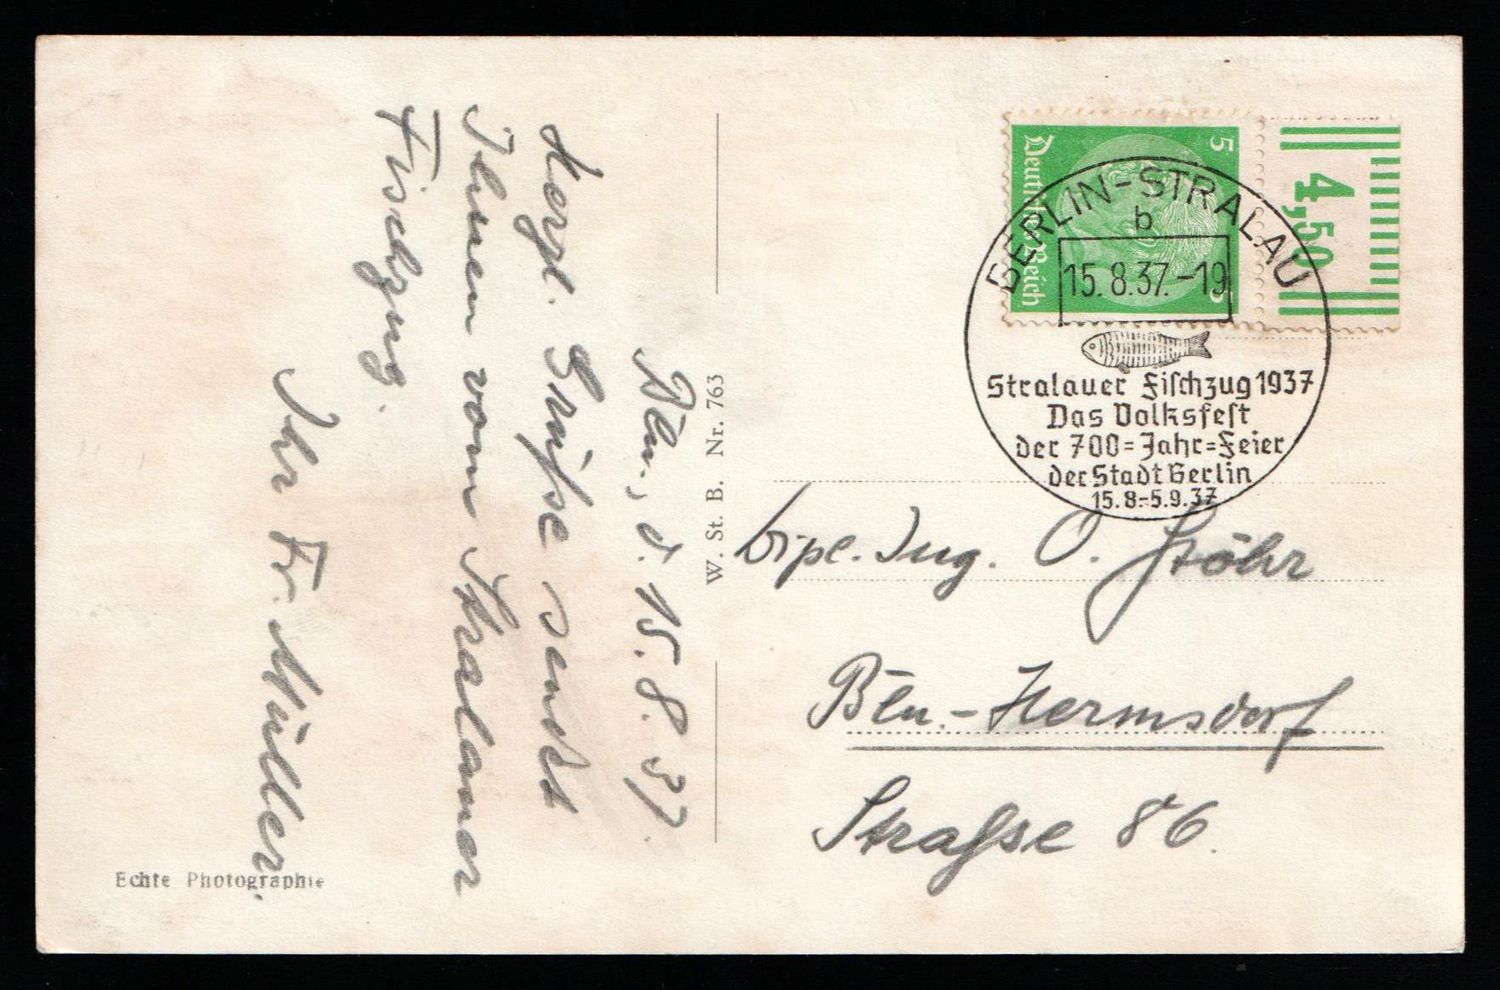 Bln., d. 15.8.37.
Herzl. Grüße sendet
Ihnen vom Stralauer
Fischzug.
Ihr Fr. Müller.
Echte Photographie
W. St. B. Nr. 763
5
Deutsches Reich
5
4,50
BERLIN-STRALAU
b
15.8.37.-19
Stralauer Fischzug 1937
Das Volksfest
der 700=Jahr=Feier
der Stadt Berlin
15.8.-5.9.37
Dipl. Ing. O. Stöhr
Bln.-Hermsdorf
Straße 86.